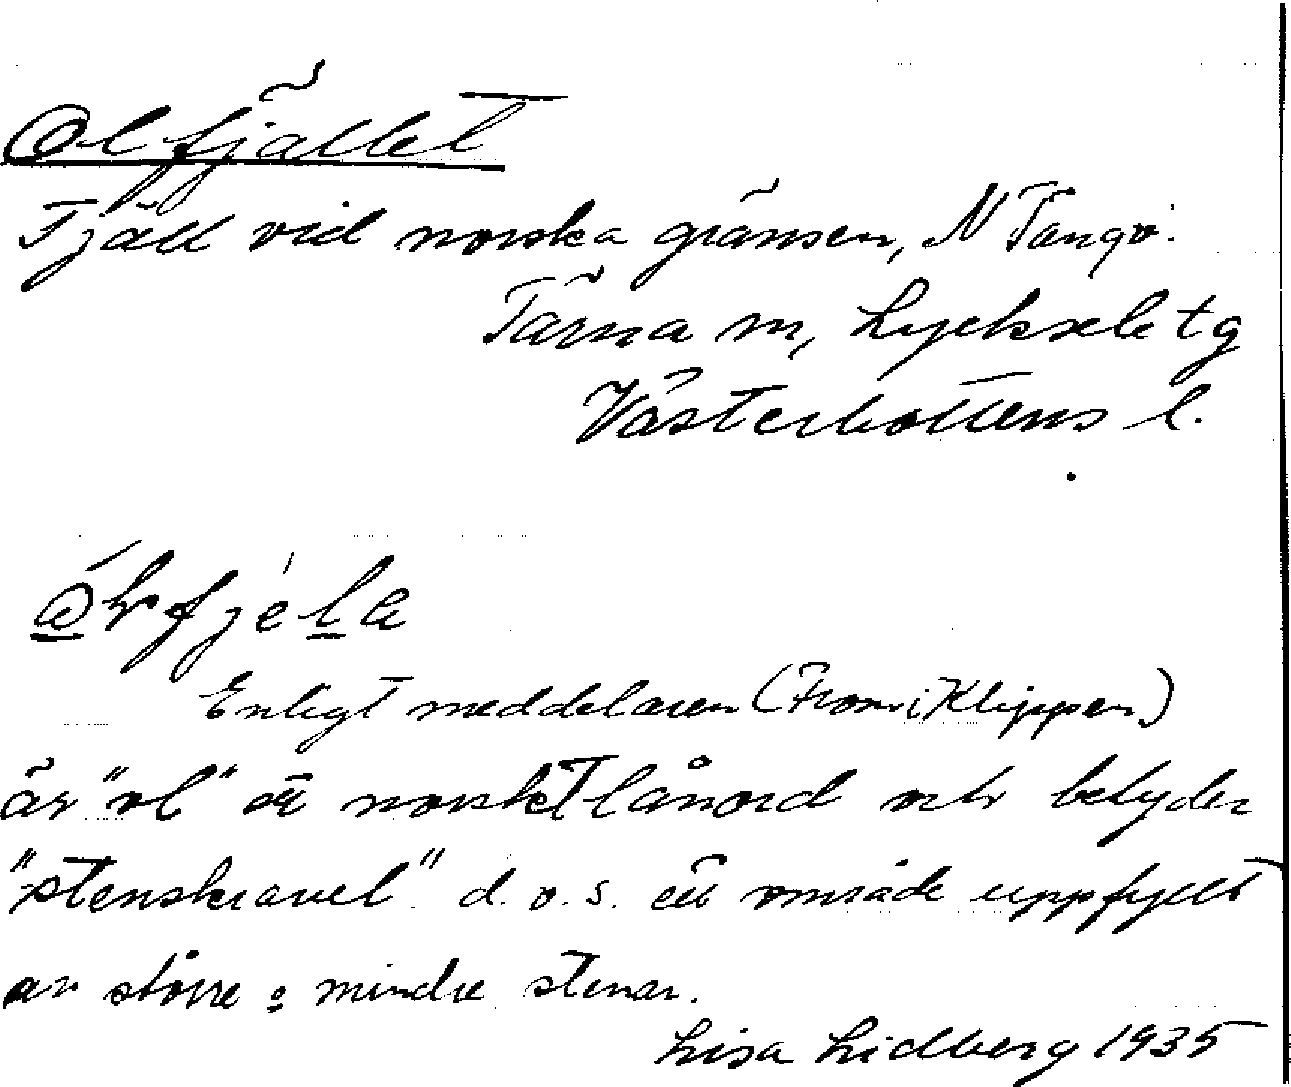 Olfjället
Fjäll vid norska gränsen, N Tängv.
Tärna sn, Lycksele tg
Västerbottens l.
Enligt meddelaren (From i Klippen)
är "ol" ett norskt lånord och betyder
"stenskravel" d.v.s. ett område uppfyllt
av större o mindre stenar.
Lisa Lidberg 1935